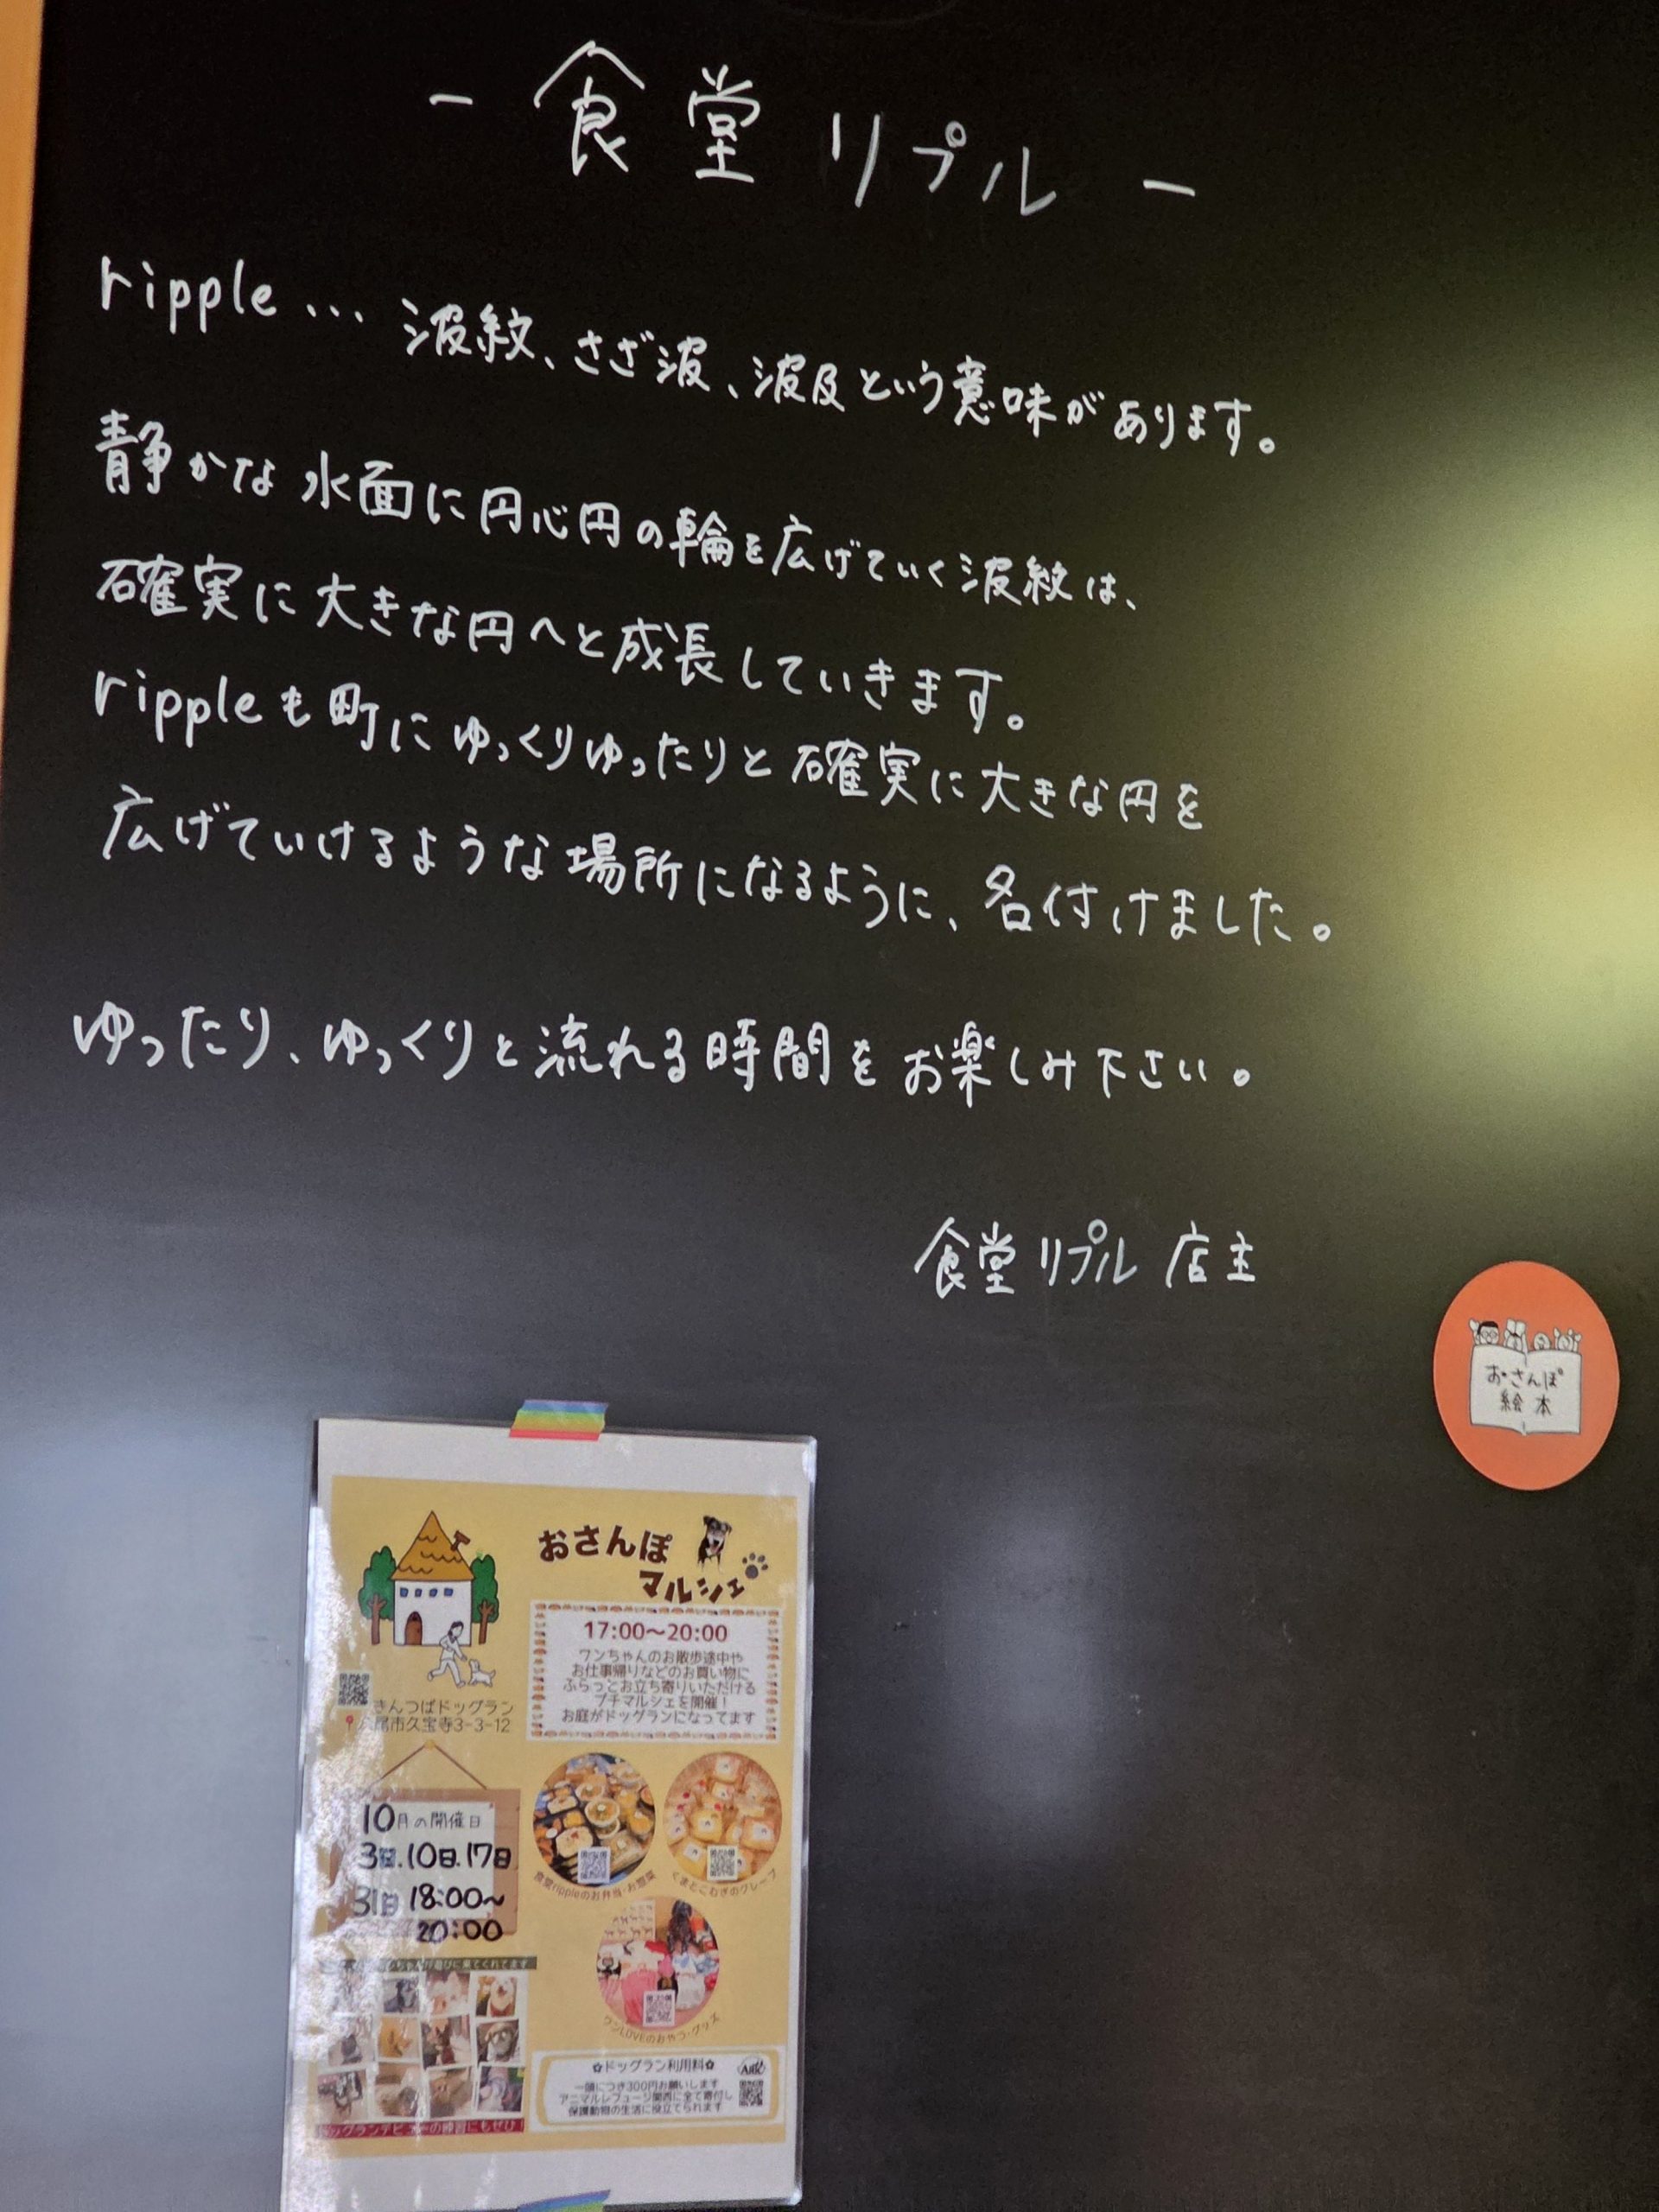 - 食堂 リプル -
ripple... 波紋、さざ波、波及という意味があります。
静かな水面に円心円の輪を広げていく波紋は、
確実に大きな円へと成長していきます。
rippleも町にゆっくりゆったりと確実に大きな円を
広げていけるような場所になるように、名付けました。
ゆったり、ゆっくりと流れる時間をお楽しみ下さい。
食堂 リプル 店主
おさんぽ
絵本
おさんぽ
マルシェ
17:00〜20:00
ワンちゃんのお散歩途中や
お仕事帰りなどのお買い物に
ふらっとお立ち寄りいただける
プチマルシェを開催!
お庭がドッグランになってます
きんつばドッグラン
八尾市久宝寺3-3-12
10月の開催日
3 .10日.17日
31日 18:00〜
20:00
食堂rippleのお弁当・お惣菜
くまとこむぎのクレープ
ワンLOVEのおやつ・グッズ
ちゃんが遊びに来てくれてます
ドッグランデビューの練習にもぜひ!
✿ドッグラン利用料✿
一頭につき300円お願いします
アニマルレフュージ関西に全て寄付し
保護動物の生活に役立てられます